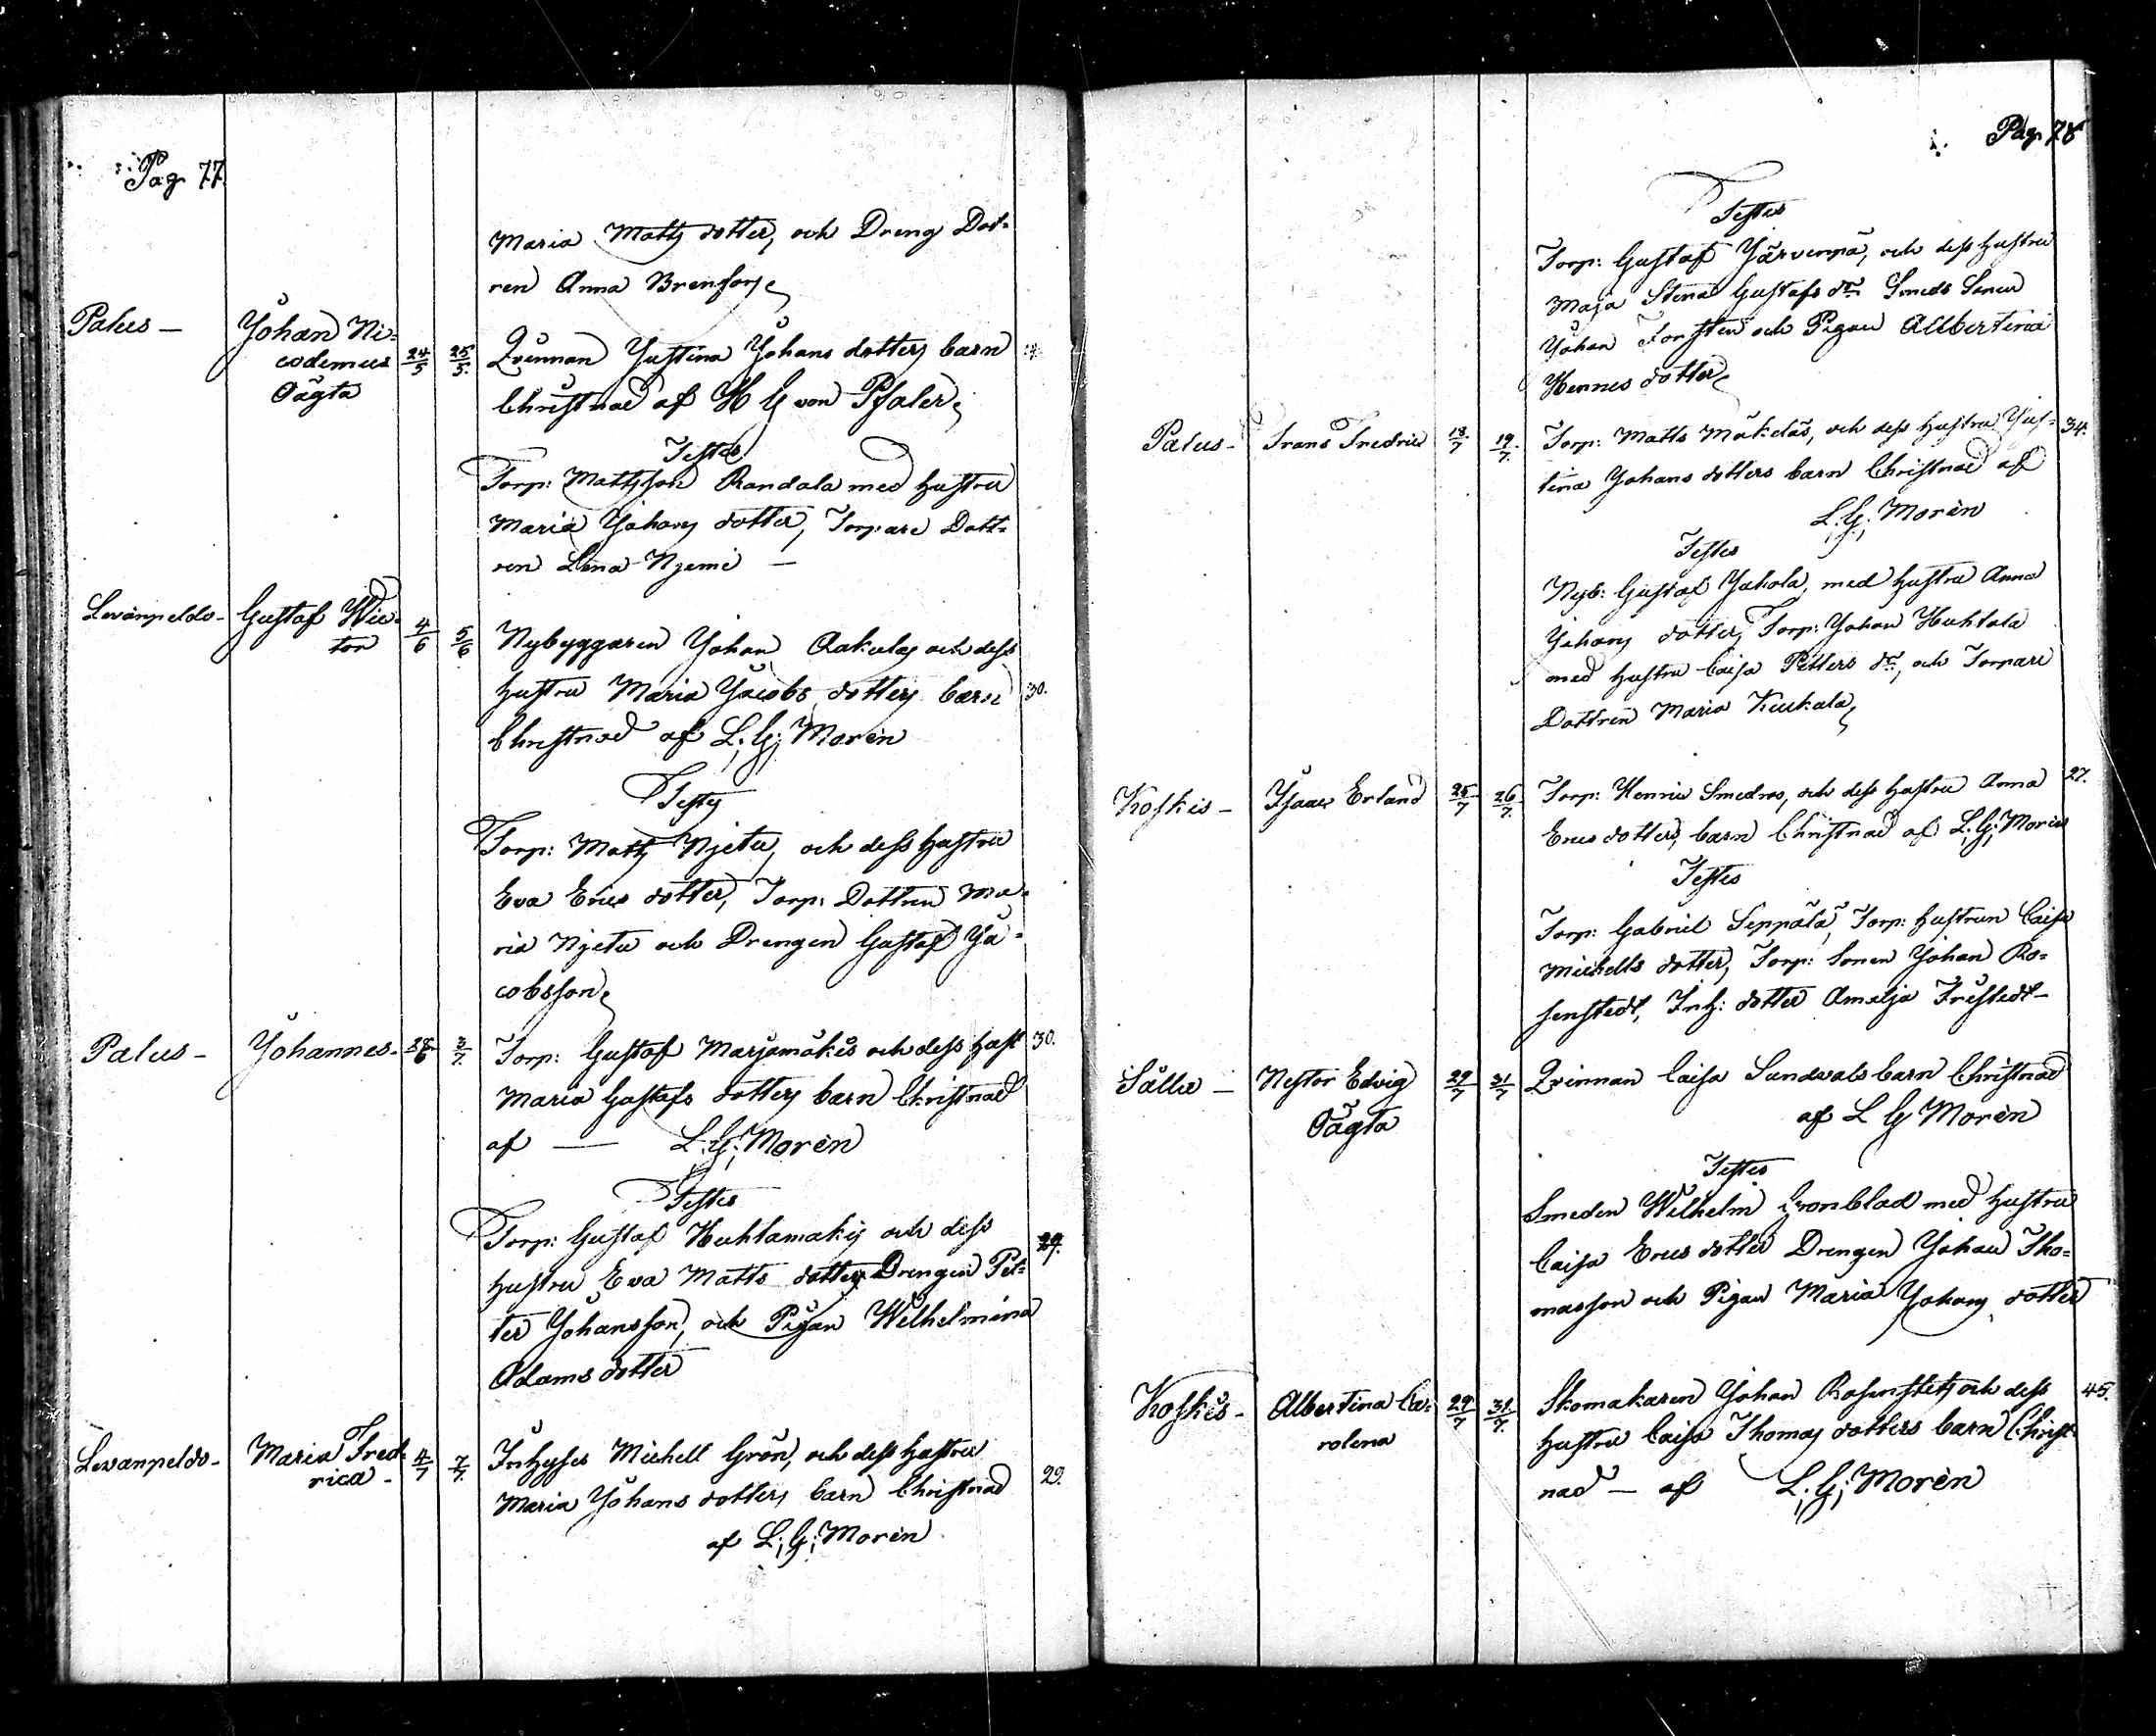 Pag 77.
Maria Matts dotter, och Dreng Dot=
ren Anna Brenfors
Palus — Johan Ni=
codemus 24/5 25/5 Qvinnan Justina Johans dotters barn
Oägta Christnad af H G von Pfaler
Testes
Torp: Mattsson Randala med hustru
Maria Johans dotter, Torpare Dott=
ren Lena Njemi —
Levänpeldo - Gustaf Wic=
tor 4/6 5/6 Nybyggaren Johan Aakulas och dess
hustru Maria Jacobs dotters barn 30.
Christnad af L: G: Morèn
Testes
Torp: Matts Njetu, och dess hustru
Eva Erics dotter, Torp: Dottren Ma=
ria Njetu och Drengen Gustaf Ja=
cobsson
Palus - Johannes - 28/6 3/7 Torp: Gustaf Marjamäkis och dess hust 30.
Maria Gustafs dotters barn Christnad
af — L: G: Morèn
Testes
Torp: Gustaf Huhtamakis och dess
hustru Eva Matts dotter Drengen Pet=
ter Johansson, och Pigan Wilhelmina
Adams dotter
Levanpeldo - Maria Fred=
rica - 4/7 7/7 Inhyses Michell Grön, och dess hustru
Maria Johans dotters barn Christnad 29.
af L: G: Morèn
Pag 78
Testes
Torp: Gustaf Järvenpä, och dess hustru
Maja Stina Gustafs dr Smeds Sonen
Johan Forsten och Pigan Allbertina
Hennes dotter
Palus - Frans Fredric 18/7 19/7 Torp: Matts Mäkeläs, och dess hustru Jus= 34.
tina Johans dotters barn Christnad af
L: G: Morèn
Testes
Nyb: Gustaf Jakola, med hustru Anna
Johans dotter, Torp: Johan Huhtala
med hustru Caisa Petters dr, och Torpare
Dottren Maria Kuukala
Koskis - Isaac Erland 25/7 26/7 Torp: Henric Smedros, och dess hustru Anna 27.
Erics dotters, barn Christnad af L: G: Morèn
Testes
Torp: Gabriel Seppälä, Torp: hustrun Caisa
Michells dotter, Torp: Sonen Johan Ro=
senstedt, Inh: dotter Amalja Fristedt —
Sållu — Nestor Edvig 29/7 31/7 Qvinnan Caisa Sundvals barn Christnad
Oägta af L G Morèn
Testes
Smeden Wilhelm Gronblad med hustru
Caisa Erics dotter Drengen Johan Tho=
masson och Pigan Maria Johans dotter
Koskis - Albertina Ca= 29/7 31/7 Skomakaren Johan Rosenstets och dess 45.
rolena hustru Caisa Thomas dotters barn Christ
nad — af L: G: Morèn